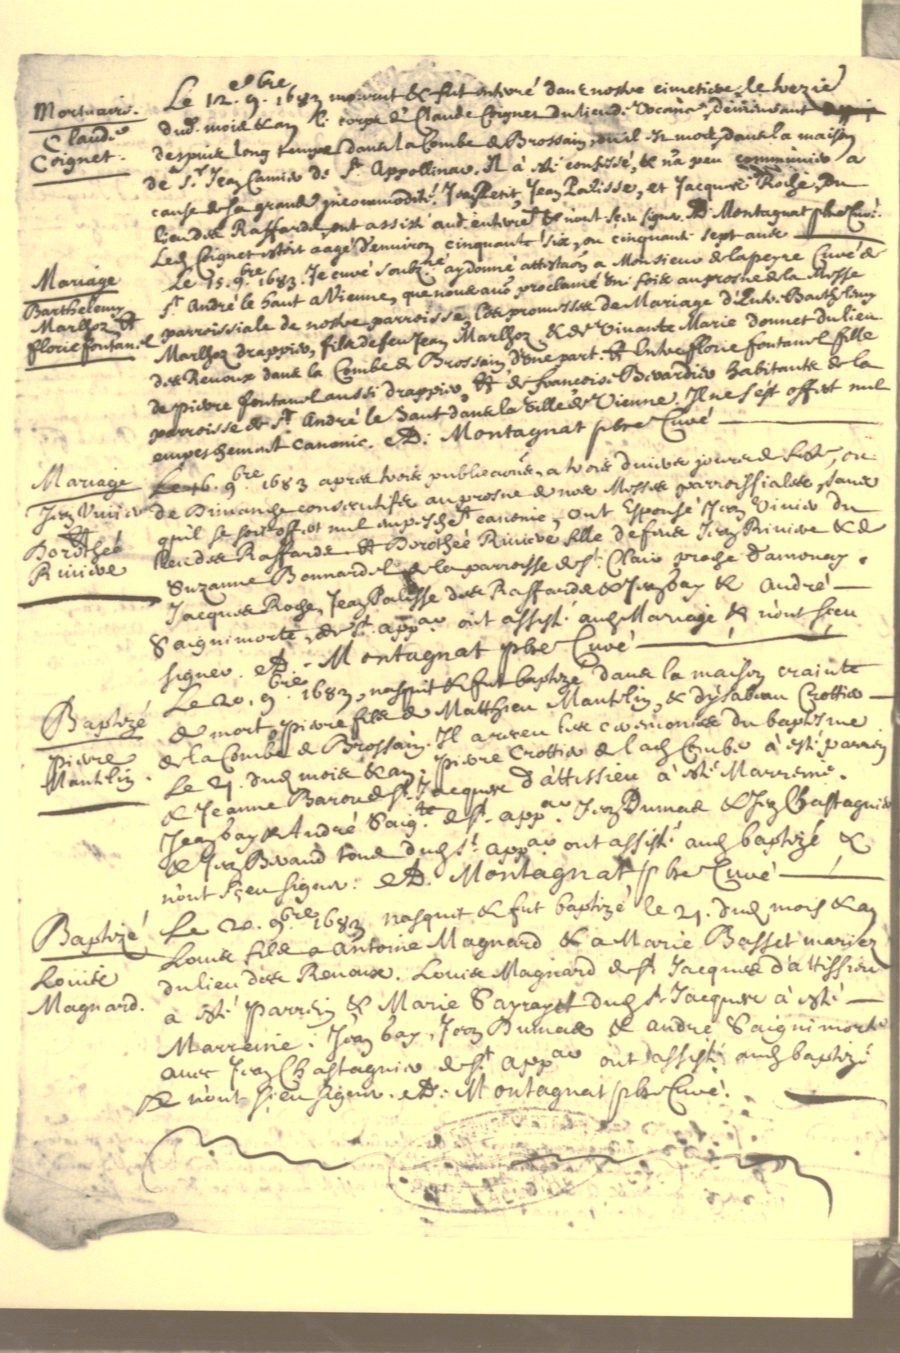 Mortuaire.
Claude
Coignet.
Le 12e 9bre 1683 mourut & fut enterré dans nostre cimetiere
dud. mois & an le corps de Claude Coignet du lieu de demeurant
despuis long temps dans la Combe de Brossain, ou il est mort, dans la maison
de Sr Jean Camier de St Appollinar. Il à esté confessé, & n'a peu communier a
cause de sa grande incommodité. Jean Petit, Jean Palisse, et Jacques Roche, du
lieu des Raffards, ont assisté aud. enterremt & n'ont sceu signer. D Montagnat pbre Curé.
Led Coignet estoit aagé d'environ cinquante six, ou cinquante sept ans
Mariage
Barthelemy
Marlhoz &
florie fontanel
Le 15. 9bre 1683. Je curé soubzné ay donné attistaõn a Monsieur de lapeyre Curé de
St André le haut a Vienne, que nous avõs proclamé trois fois au prosne de la Messe
parroissiale de nostre parroisse, les promesses de Mariage d'Entre Barthelemy
Marlhoz drappier, fils de feu Jean Marlhoz & de Vivante Marie Donnet du lieu
des Renoux dans la Combe de Brossain d'une part. & Entre florie fontanel fille
de pierre fontanel aussi drappier, & de francoise Berardier habitants de la
parroisse de St André le haut dans la Ville de Vienne. Il ne s'est offert nul
empeschement canonic. D. Montagnat pbre Curé
Mariage
Jean Vinier
&
Dorothée
Riviere
Le 16. 9bre 1683 apres trois publicaõns a trois divers jours de feste, ou
de Dimanche consecutifs au prosne de nos Messes parroissiales, sans
qu'il se soit offert nul empeschet canonic, ont Espousé Jean Vinier du
lieu des Raffards & Dorothée Riviere fille de feus Jean Riviere & de
Suzanne Bonnardel de la parroisse de St Clair proche d'annonay.
Jacques Roche, Jean Palisse des Raffards & Jean bay & André
Saignimorte, de St appar ont assisté aud Mariage & n'ont sceu
signer. D. Montagnat pbre Curé
Baptizé
pierre
Mantelin.
Le 20. 9bre 1683, nasquit & fut baptizé dans la maison crainte
de mort, pierre fils de Matthieu Mantelin, & d'ysabeau Crottier
de la Combe de Brossain. Il a receu les ceremonies du baptisme
Le 21. dud mois & an; pierre Crottier de lad Combe à esté parrein
& Jeanne Barou de St Jacques d'attissieu à esté Marreine.
Jean bay & André Saigte de St appar Jean Dumas & Jean Chastagnier
& Jean Beraud tous dud St appar ont assisté aud baptizé &
n'ont sceu signer. D. Montagnat pbre Curé
Baptizé
Louise
Magnard.
Le 20. 9bre 1683 nasquit & fut baptizé le 21. dud mois & an
Louise fille a Antoine Magnard & a Marie Basset mariez
du lieu des Renoux. Louis Magnard de St Jacques d'attissieu
a esté parrein & Marie Sayrayet dud St Jacques à esté
Marreine. Jean bay, Jean Dumas & andré Saignimorte
avec Jean Chastagnier de St appar ont assisté aud baptizé
& n'ont sceu signer. D. Montagnat pbre Curé.